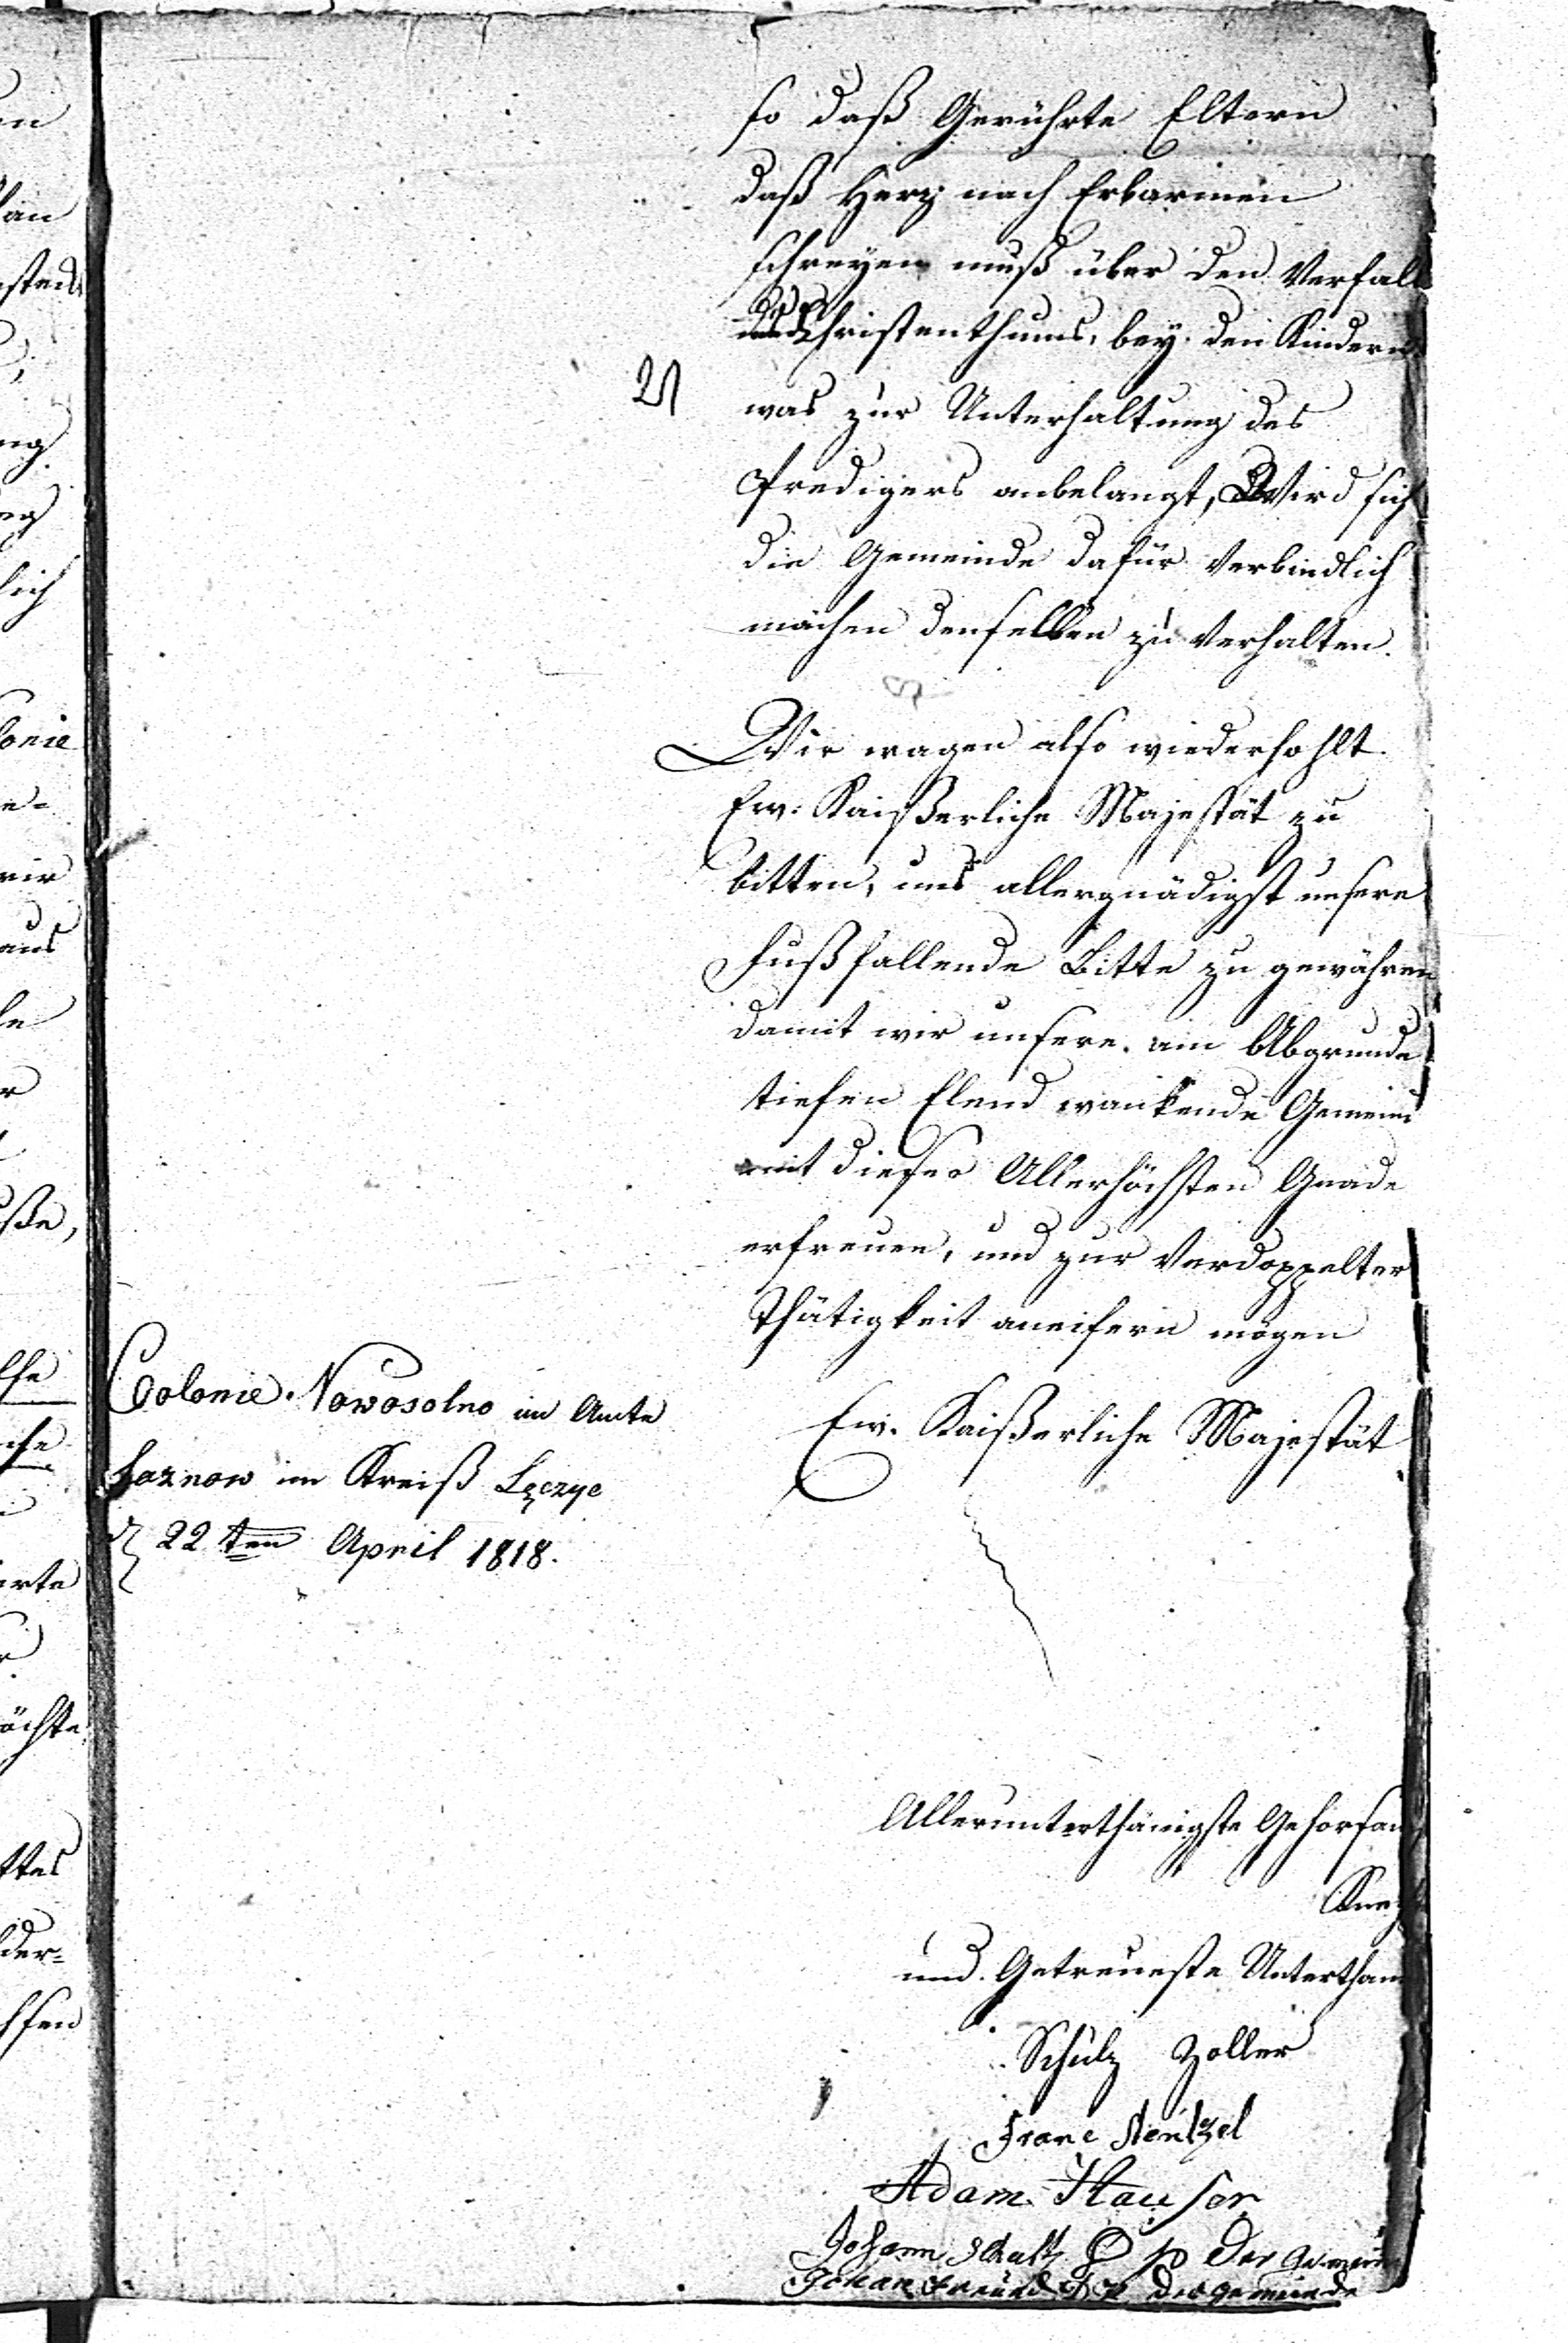 so daß Gerührte Eltern
daß Herz nach Erbarmen
schreyen muß über den Verfall
des Christenthums, bey den Kindern
2) was zur Unterhaltung des
Predigers anbelangt, Wird sich
die Gemeinde dafür Verbindlich
machen denselben zu Verhalten.
Wir wagen also wiederhohlt
Ew: Kaißerliche Majestät zu
bitten, uns allergnädigst unsere
Fußfallende Bitte zu gewähren
damit wir unsere am Abgrunde
tiefen Elend wankende Gemeind
mit dieser Allerhöchsten Gnade
erfreuen, und zur Verdoppelter
Thätigkeit aneifern mögen
Ew. Kaißerliche Majestät
Colonie Nowosolno im Amte
Laznow im Kreiß Lęczyc
d 22ten April 1818.
Allerunterthänigste Gehorsam
Knech
und Getreueste Unterthan
Schulz Zoller
Franc Hentzel
Adam Hauser
Johann Schultz der Gemein
Johan Freund der gemeinde